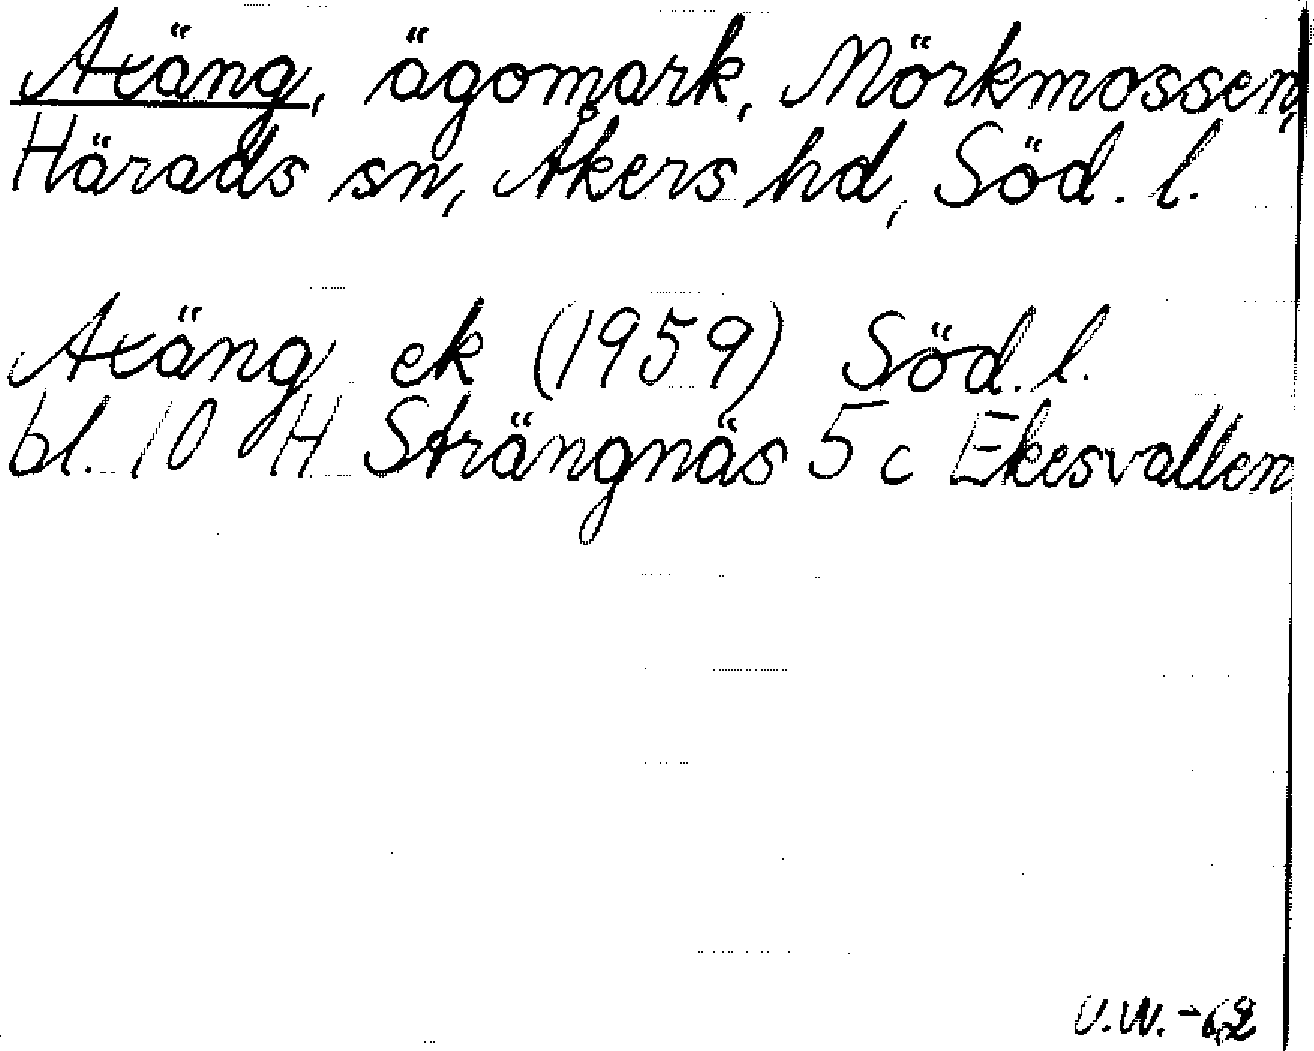 Axäng, ägomark, Mörkmossen,
Härads sn, Åkers hd, Söd. l.
Axäng ek (1959) Söd. l.
bl. 10 H Strängnäs 5 c Ekesvallen
V.W. -62